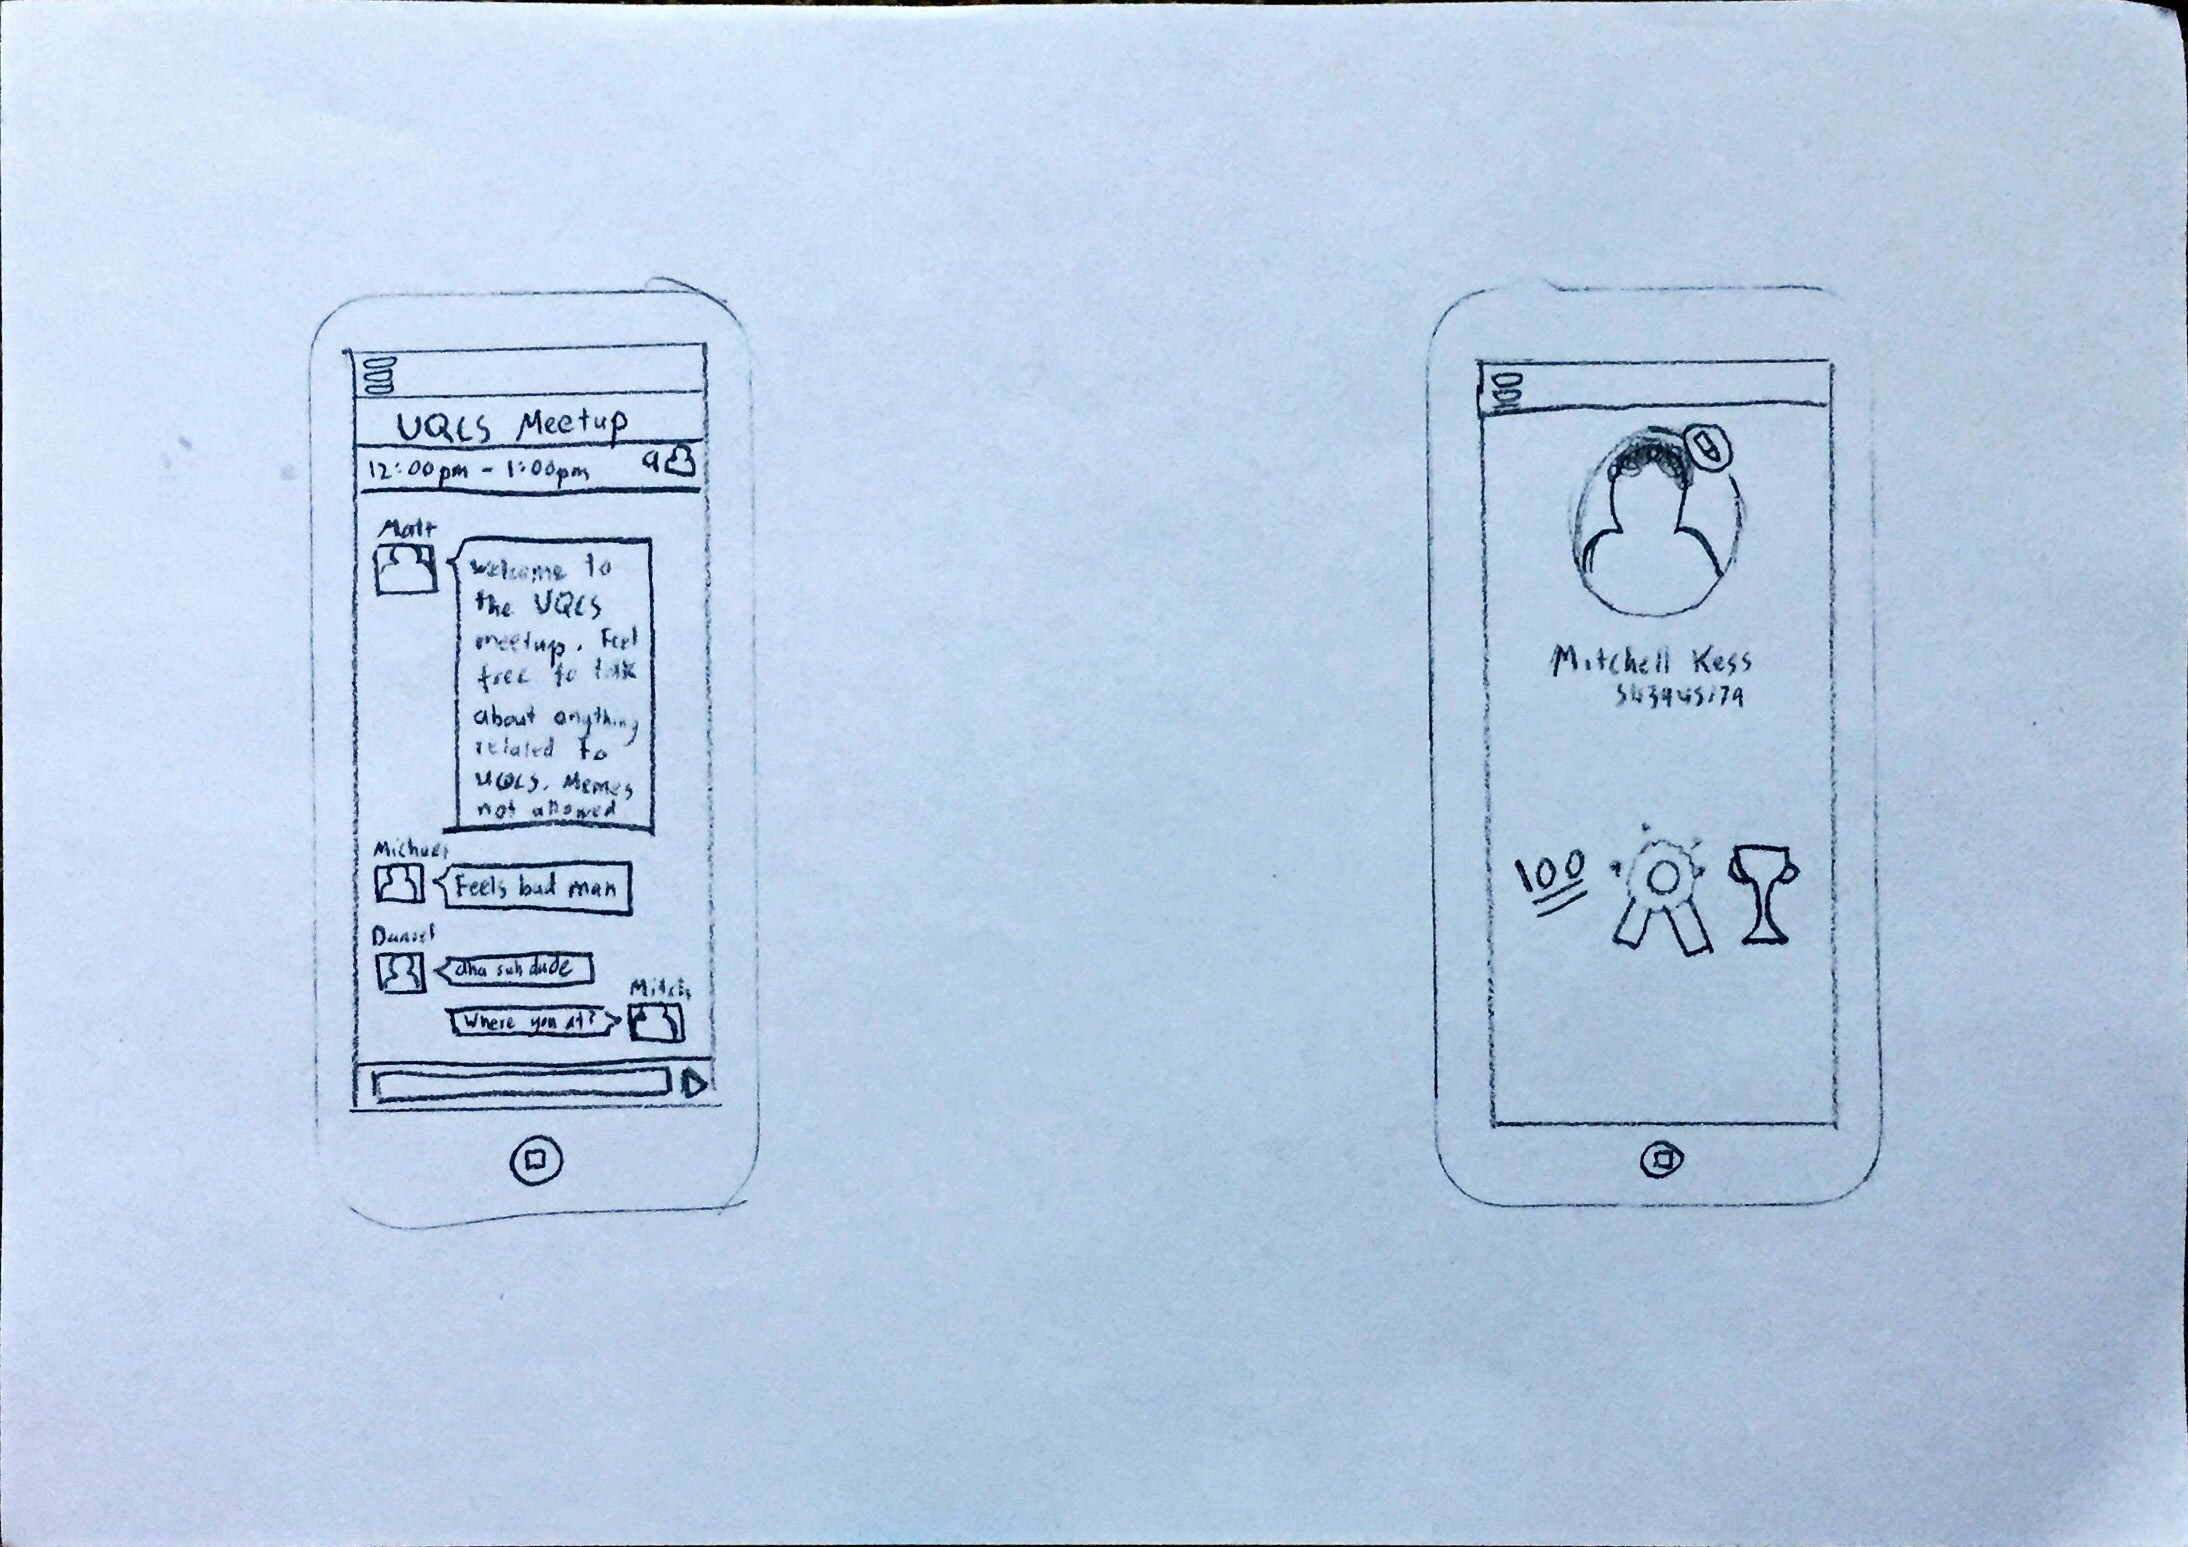 UQCS Meetup
12:00pm - 1:00pm 9
Matt
Welcome to
the UQCS
meetup. Feel
free to talk
about anything
related to
UQCS. Memes
not allowed
Michael
Feels bad man
Daniel
dha suh dude
Mitch
Where you at?
Mitchell Kess
100